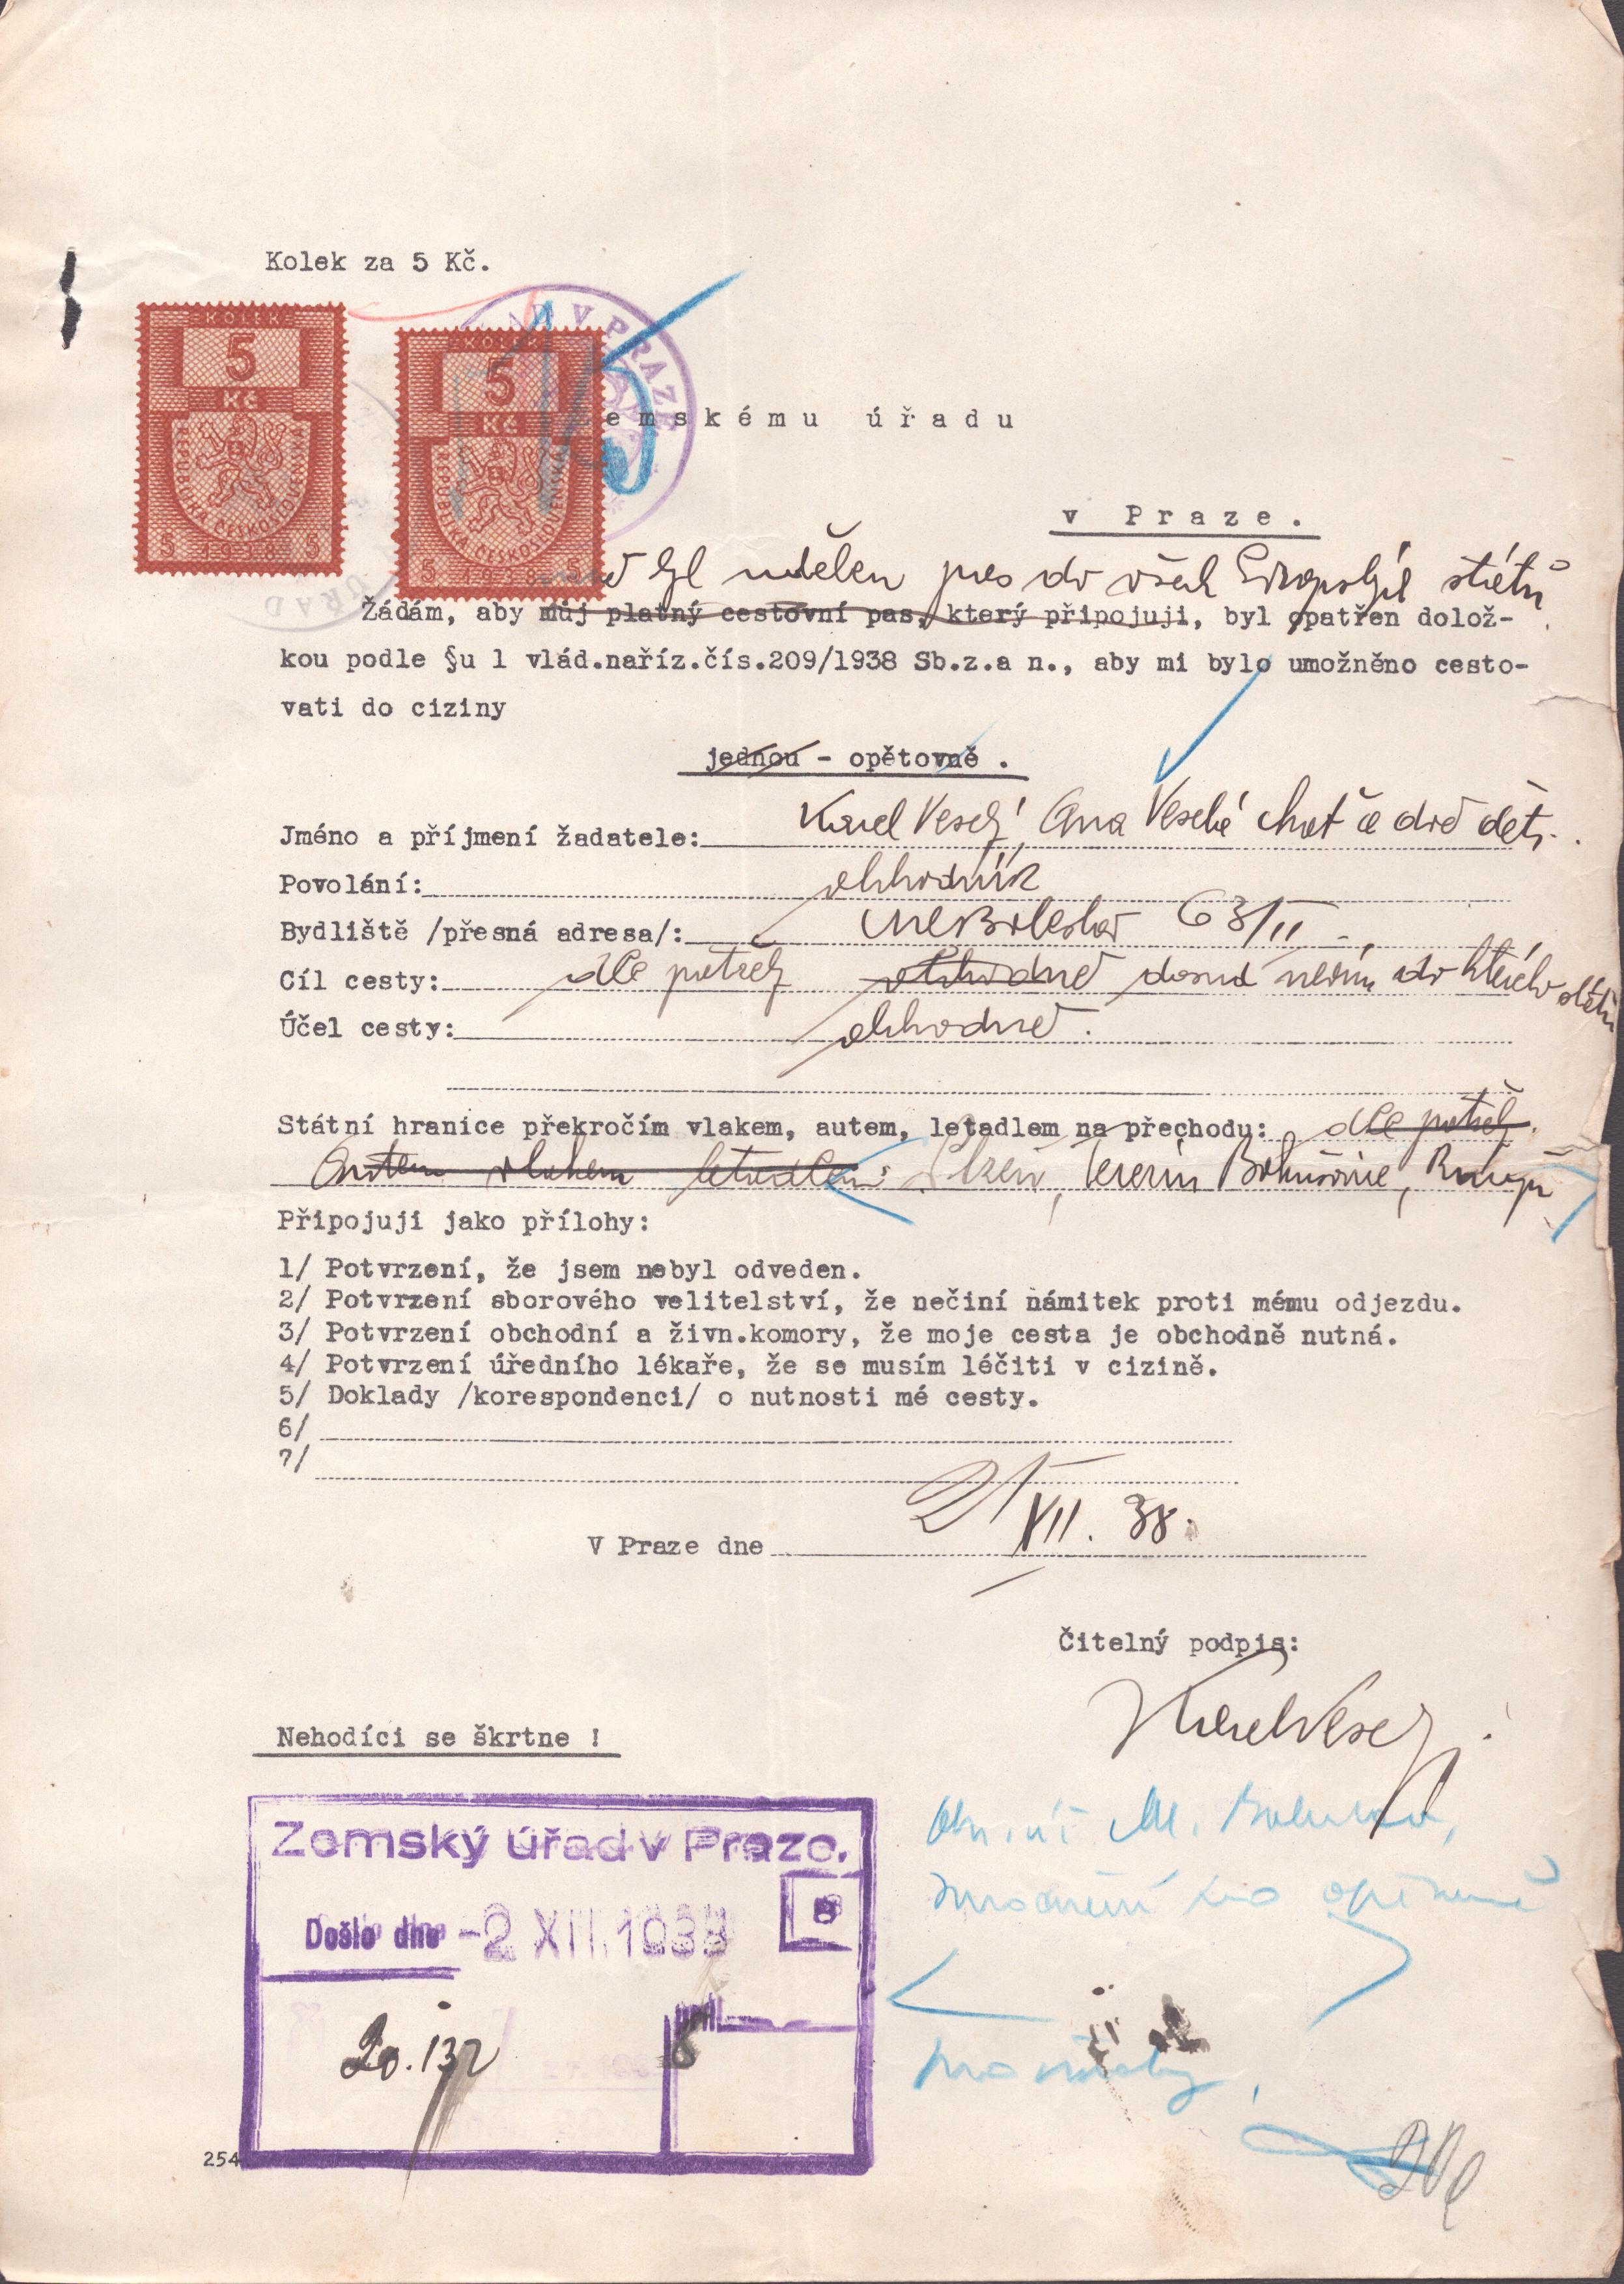 Kolek za 5 Kč.
KOLEK
5
Kč
REPUBLIKA ČESKOSLOVENSKÁ
5 1938 5
KOLEK
5
Kč
REPUBLIKA ČESKOSLOVENSKÁ
5 1938 5
V PRAZE
ÚŘAD
emskému úřadu
v Praze.
byl udělen pas do všech států
Žádám, aby můj platný cestovní pas, který připojuji, byl opatřen dolož-
kou podle §u 1 vlád.naříz.čís.209/1938 Sb.z.a n., aby mi bylo umožněno cesto-
vati do ciziny
jednou - opětovně .
Jméno a příjmení žadatele: Karel Veselý, Ana Veselá choť a dvě děti.
Povolání: obchodník
Bydliště /přesná adresa/: Ml Boleslav 63/II
Cíl cesty: dle potřeby obchodně dosud nevím do kterého státu
Účel cesty: obchodně.
Státní hranice překročím vlakem, autem, letadlem na přechodu: dle potřeby.
Autem vlakem letadlem Plzeň, Bohušovice, Ruzyň
Připojuji jako přílohy:
1/ Potvrzení, že jsem nebyl odveden.
2/ Potvrzení sborového velitelství, že nečiní námitek proti mému odjezdu.
3/ Potvrzení obchodní a živn.komory, že moje cesta je obchodně nutná.
4/ Potvrzení úředního lékaře, že se musím léčiti v cizině.
5/ Doklady /korespondenci/ o nutnosti mé cesty.
6/
7/
V Praze dne 2/XII. 38.
Čitelný podpis:
Karel Veselý
Nehodíci se škrtne !
Zemský úřad v Praze.
Došlo dne -2 XII. 1938
8
20.132
příl.
254